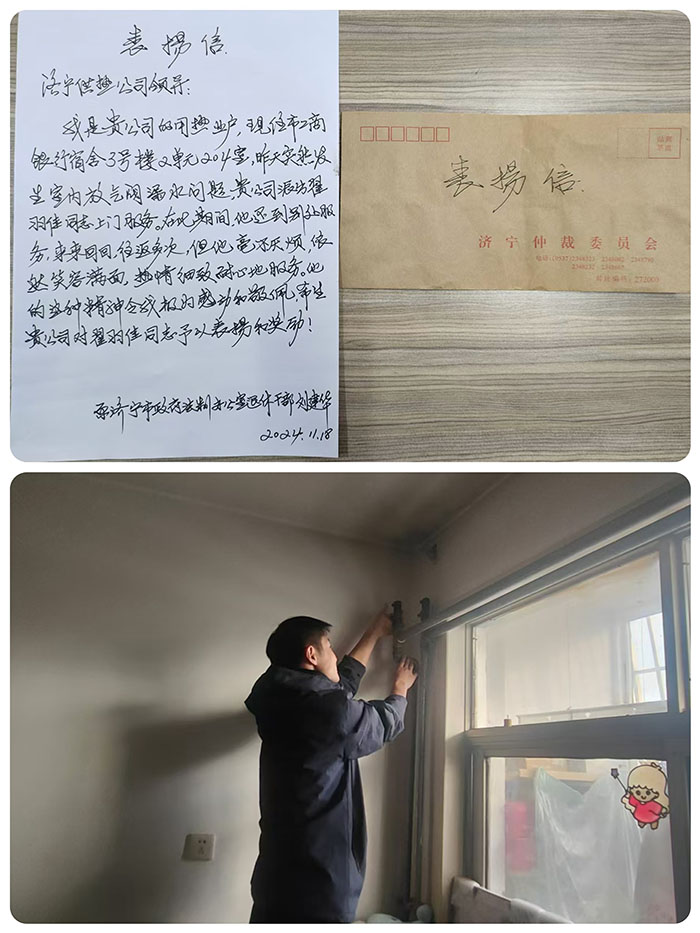 表揚信.
济宁供热公司领导:
我是贵公司的用热业户,现住市工商
银行宿舍3号楼2单元204室,昨天突然发
生室内放气阀漏水问题,贵公司派出翟
羽佳同志上门服务。在此期间,他还到别处服
务,来来回回,往返多次,但他毫不厌烦,依
然笑容满面,热情细致耐心地服务。他
的这种精神令我极为感动和敬佩,希望
贵公司对翟羽佳同志予以表揚和奖励!
原济宁市政府法制办公室退休干部 刘建华
2024.11.18
表揚信.
济宁仲裁委员会
邮政编码: